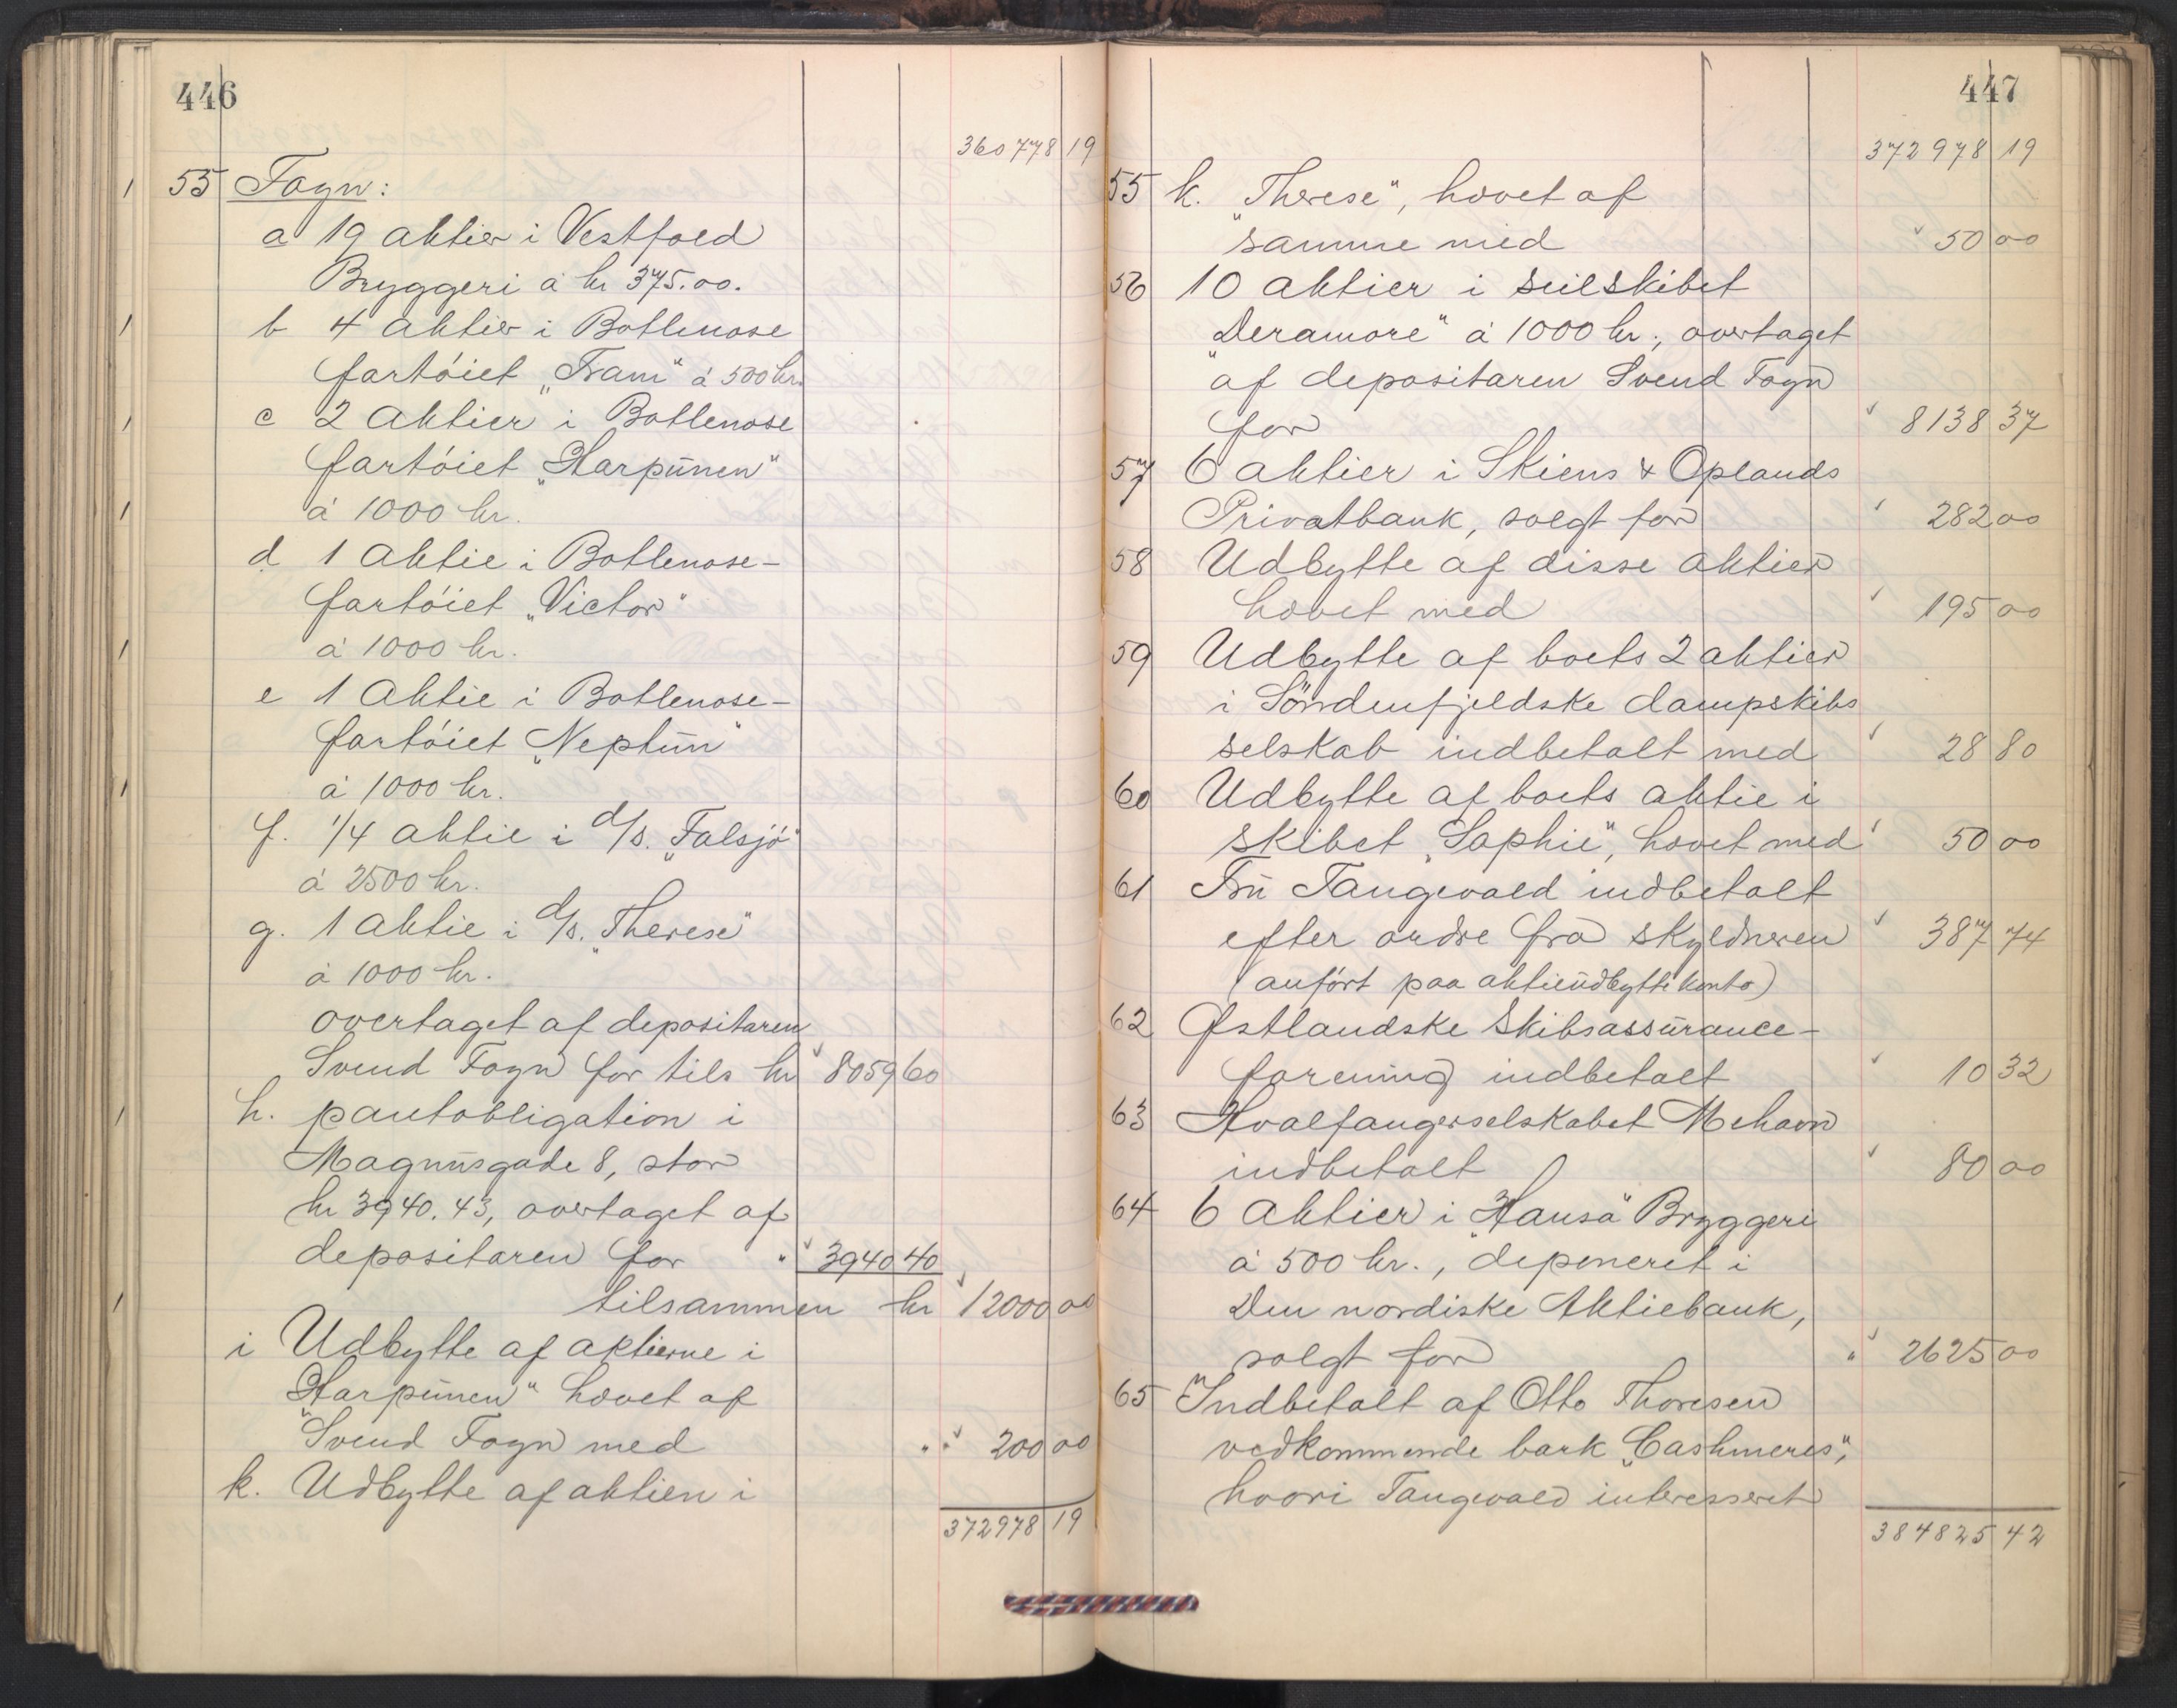 446
360778 19
55 Foyn:
a 19 aktier i Vestfold
Bryggeri á kr 375.00.
b 4 aktier i Bottlenose
fartóiet „Fram" á 500 kr.
c 2 Aktier i Bottlenose
fartóiet „Harpunen"
á 1000 kr.
d 1 aktie i Bottlenose-
fartóiet „Victor"
á 1000 kr.
e 1 Aktie i Bottlenose-
fartóiet „Neptun"
á 1000 kr.
f. 1/4 aktie i d/s. „Falsjó"
á 2500 kr.
g. 1 aktie i d/s. „Therese"
á 1000 kr.
overtaget af depositaren
Svend Foyn for tils kr 8059 60
h. pantobligation i
Magnusgade 8, stor
kr 3940.43, overtaget af
depositaren for " 3940 40
tilsammen kr 12000 00
i Udbytte af aktierne i
„Harpunen" hævet af
Svend Foyn med " " 200 00
k. Udbytte af aktien i
372978 19
447
372978 19
55 k. „Therese", hævet af
samme med 50 00
56 10 aktier i seilskibet
„Deramore" á 1000 kr., overtaget
af depositaren Svend Foyn
for 8138 37
57 6 aktier i Skiens & Oplands
Privatbank, solgt for 282 00
58 Udbytte af disse aktier
hævet med 195 00
59 Udbytte af boets 2 aktier
i Söndenfjeldske dampskibs
selskab indbetalt med 28 80
60 Udbytte af boets aktie i
skibet „Sophie", hævet med 50 00
61 Fru Tangevald indbetalt
efter ordre fra skyldneren 387 74
(anfört paa aktieudbytte konto)
62 Østlandske Skibsassurance-
forening indbetalt 10 32
63 Hvalfangerselskabet Mehavn
indbetalt 80 00
64 6 Aktier i „Hansa" Bryggeri
á 500 kr., deponeret i
Den nordiske Aktiebank,
solgt for " 2625 00
65 Indbetalt af Otto Thoresen
vedkommende bark „Cashmeres",
hvori Tangevald interesseret
384825 42